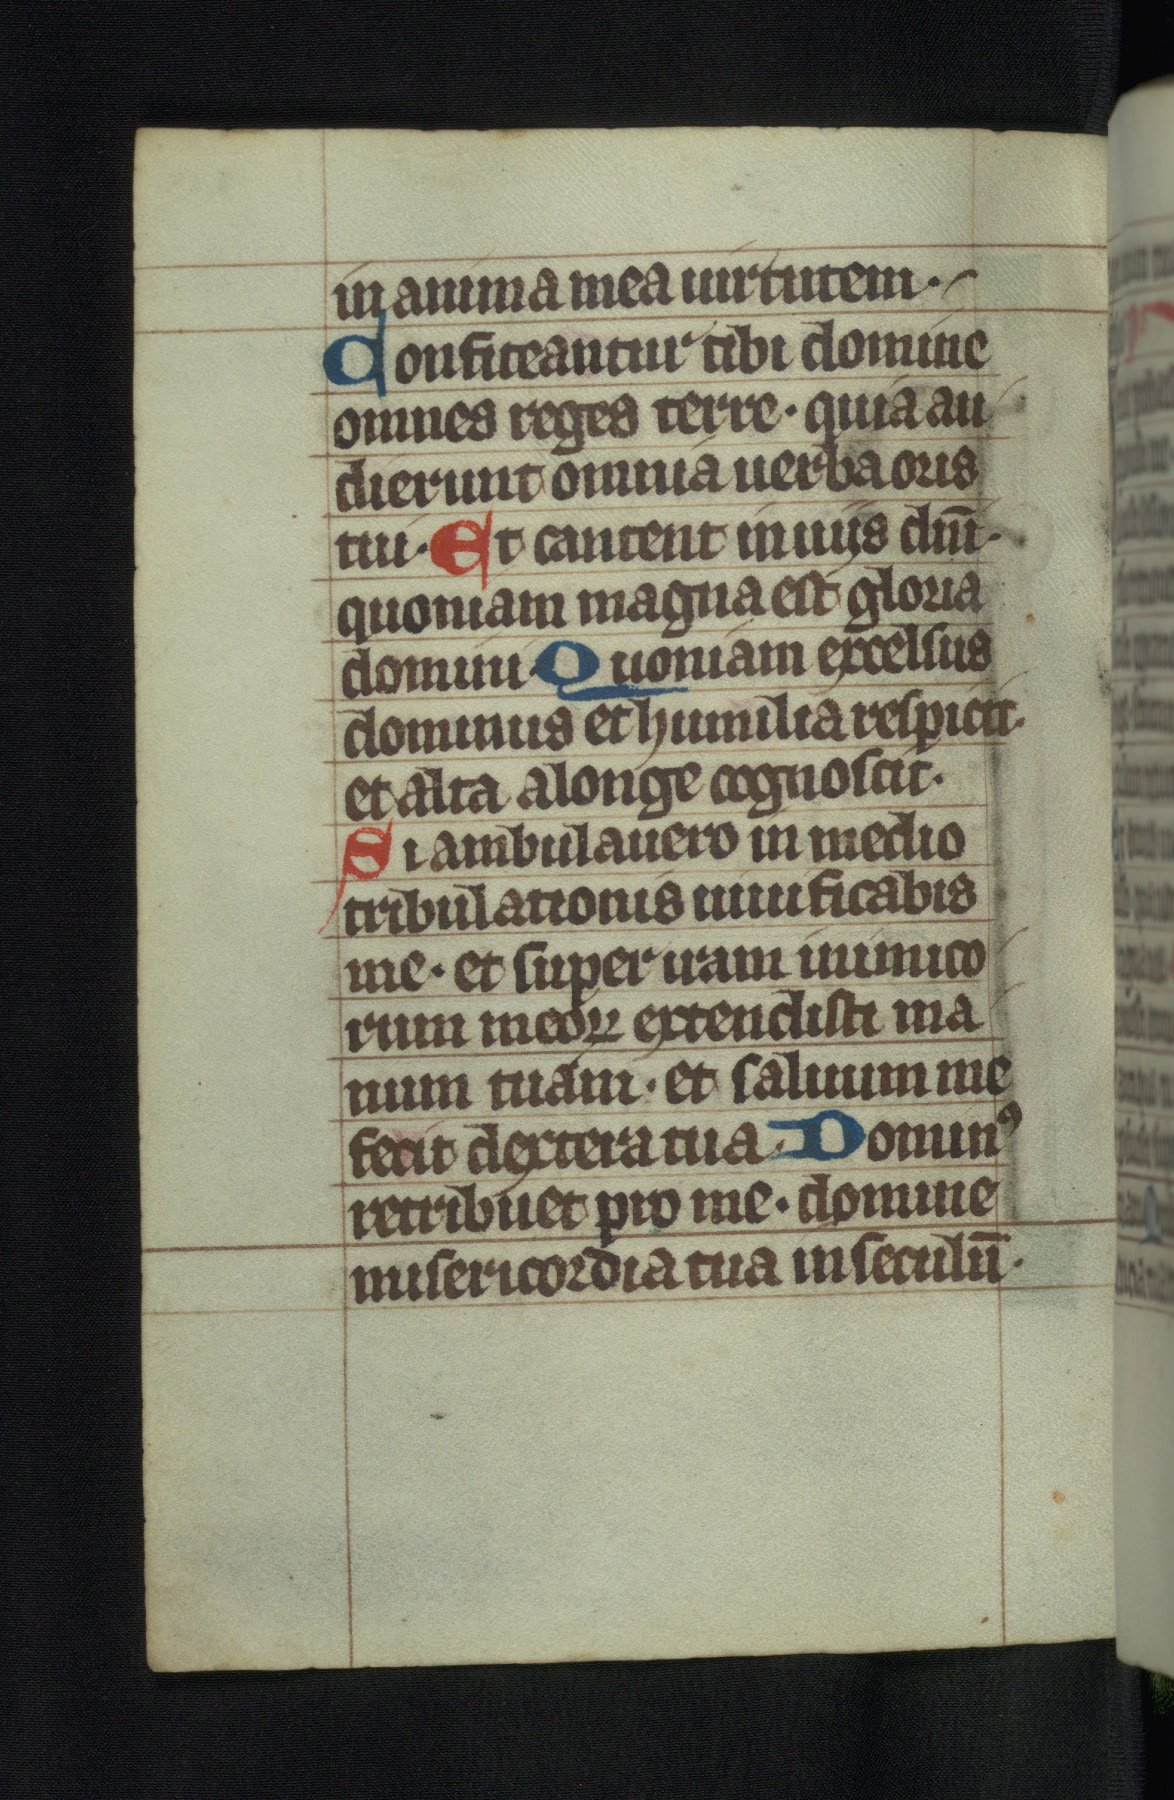 in anima mea uirtutem·
Confiteantur tibi domine
omnes reges terre· quia au
dierunt omnia uerba oris
tui· Et cantent in uijs dn̄i·
quoniam magna est gloria
domini· Quoniam excelsus
dominus et humilia respicit·
et alta alonge cognoscit·
Si ambulauero in medio
tribulationis uiuificabis
me· et super iram inimico
rum meoꝝ extendisti ma
num tuam· et saluum me
fecit dextera tua· Dominꝰ
retribuet pro me· domine
misericordia tua in seculū·